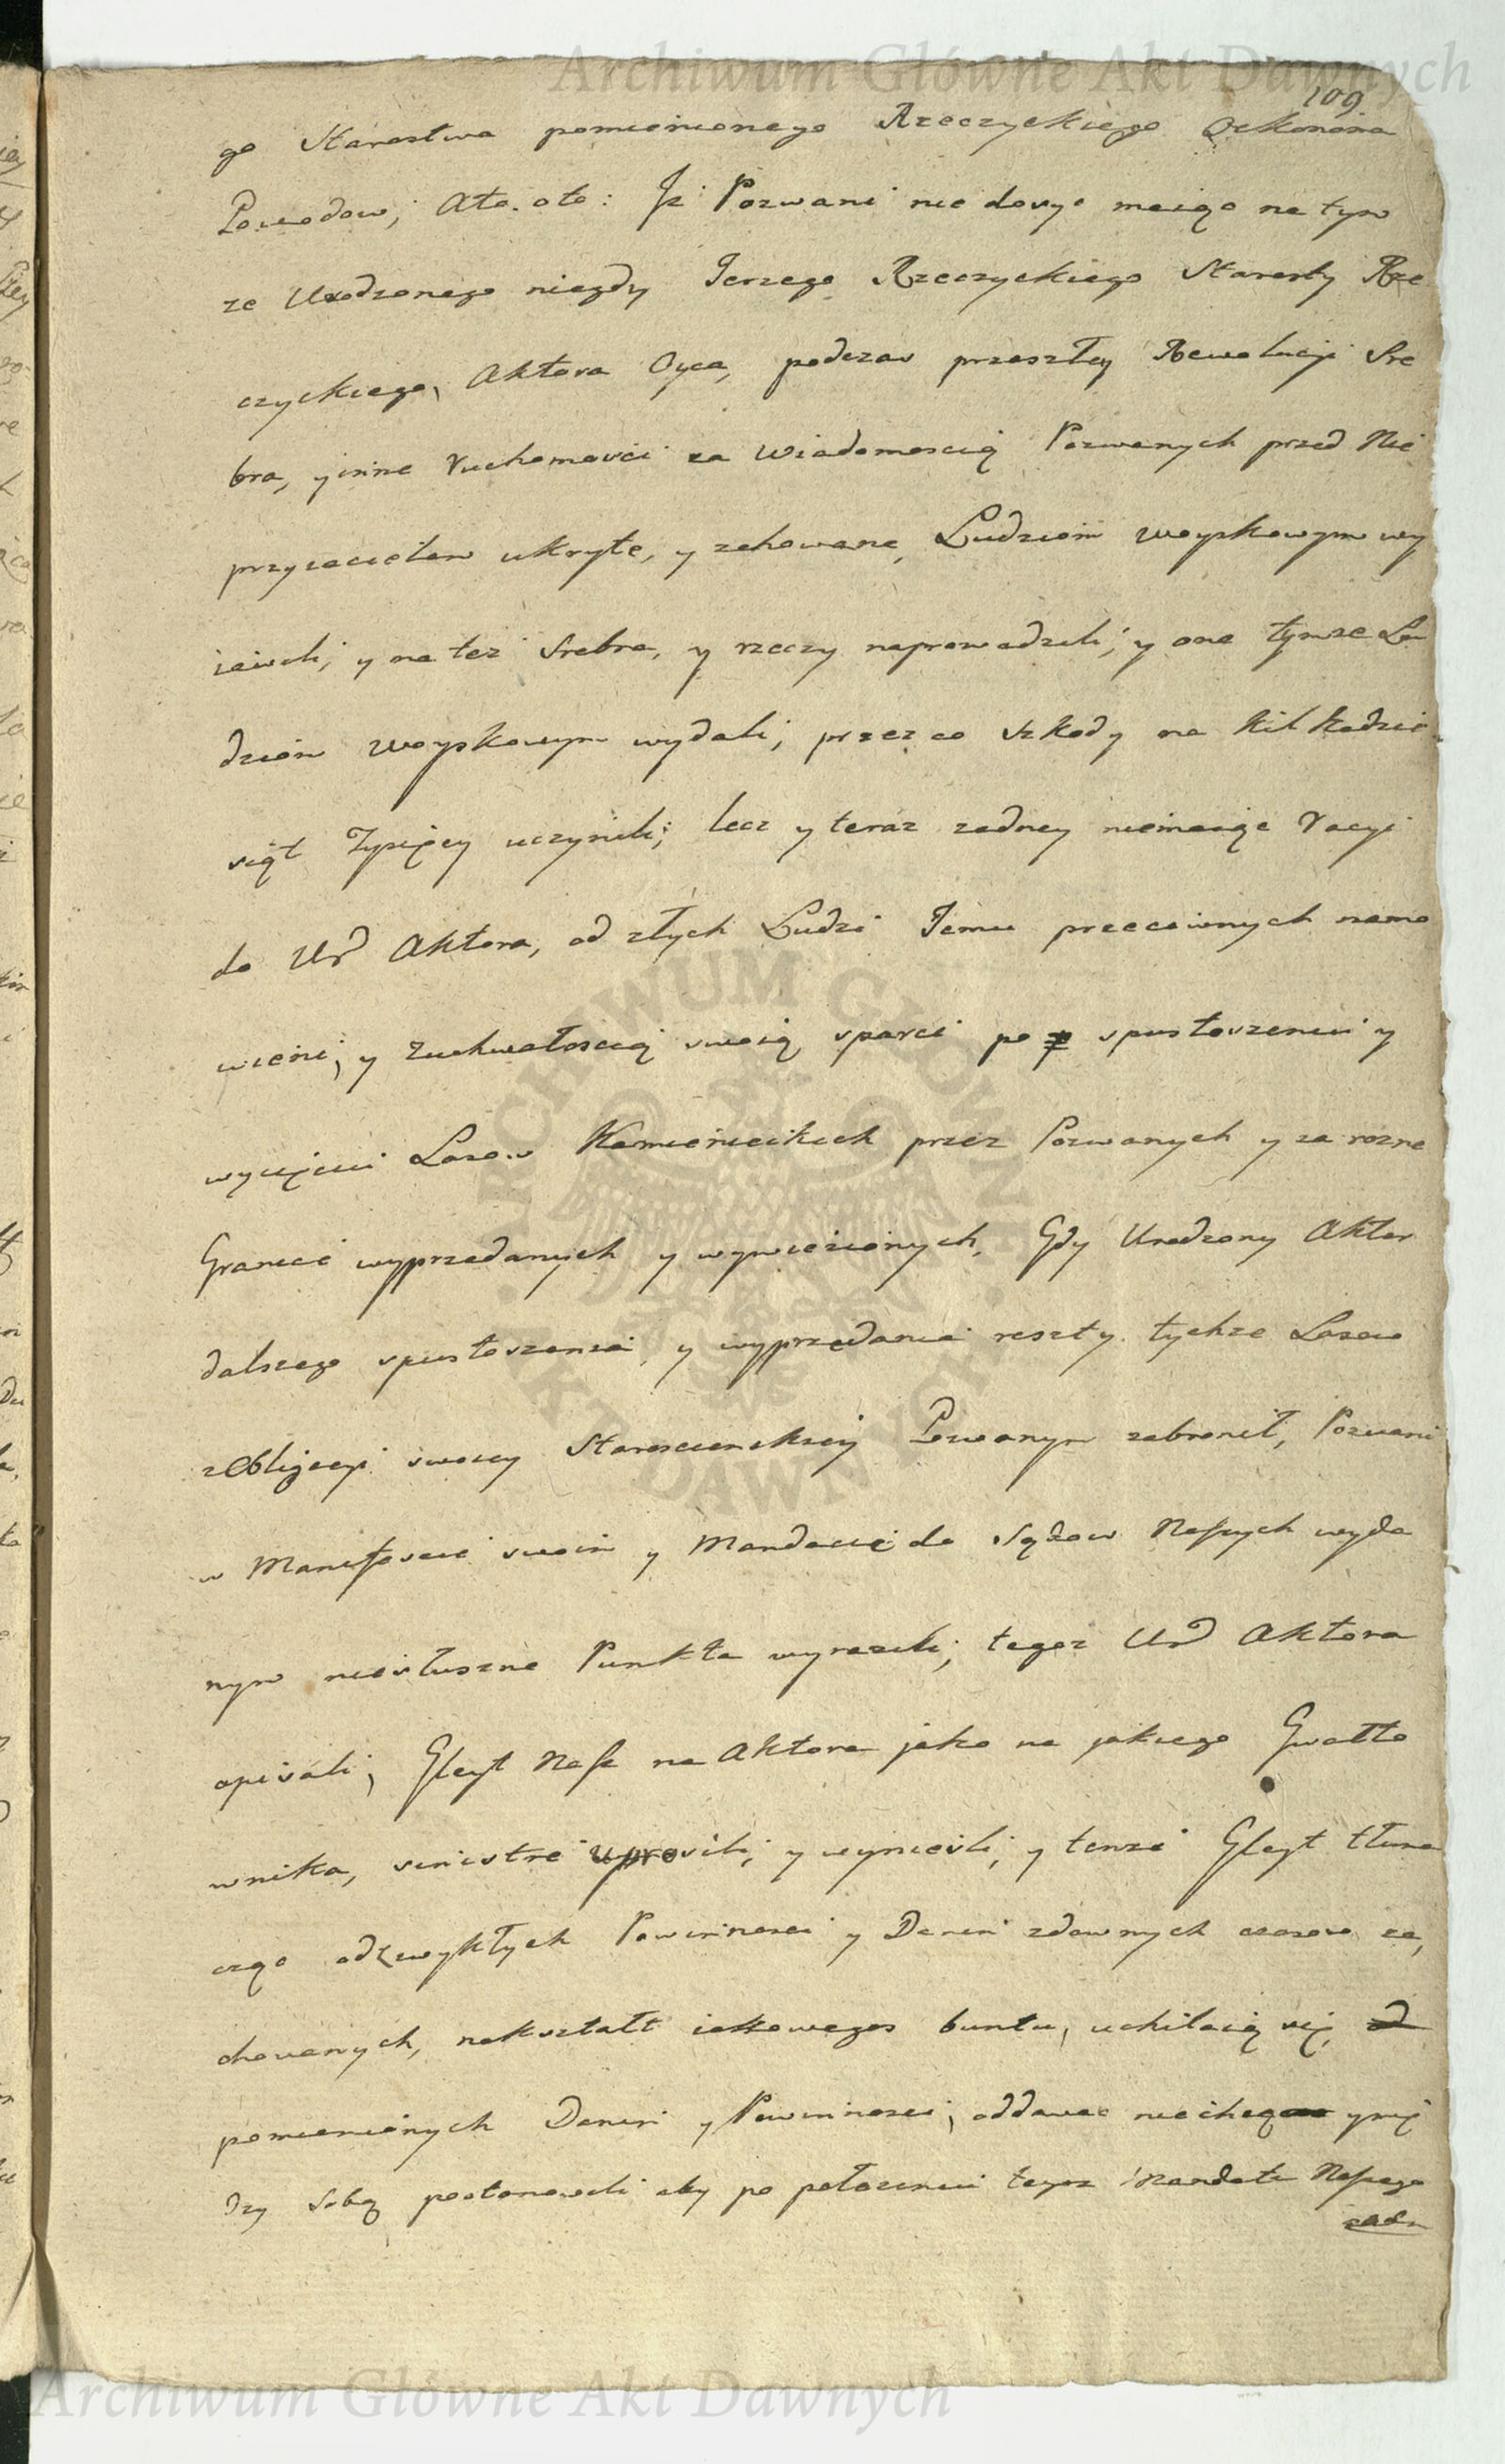 Archiwum Główne Akt Dawnych
109
go Starostwa pomienionego Rzeczyckiego Oekonoma
Powodow; Ato. oto: Jż Pozwani nie dosyć maiąc na tym
że Urodzonego niegdy Jerzego Rzeczyckiego Starosty Rze
czyckiego, Aktora Oyca, podczas przeszłey Rewolucyi Sre
bra, y inne ruchomości za Wiadomoscią Pozwanych przed Nie
przyiacielem ukryte, y zchowane, Ludziom woyskowym wy
iawili, y na też Srebra, y rzeczy naprowadzili; y one tymże Lu
dziom woyskowym wydali, przez co szkody na kilkadzie
siąt Tysięcy uczynili; lecz y teraz żadney niemaiąc racyi
do Ur Aktora, od złych Ludzi Jemu przeciwnych namo
wieni, y zuchwałoscią swoią wparci po spustoszeniu y
wycięciu Lasow Kamienieckich przez Pozwanych y za rożne
Granice wyprzedanych y wywiezionych, Gdy Urodzony Aktor
dalszego spustoszenia, y wyprzedania reszty tychże Lasow
z Obligacyi swoiey Starościnskiey Pozwanym zabronił, Pozwani
w Manifescie swoim y Mandacie do Sądow Naszych wyda
nym niesłuszne Punkta wyrazili, tegoż Ur Aktora
opisali, Gleyt Nasz na Aktora jako na jakiego Gwałto
wnika, sinistre uprosili, y wynieśli, y tenże Gleyt tłuma
cząc od zwykłych Powinnosci y Danin zdawnych czasow za,
chowanych, nakształt iakowegoś buntu, uchilaią się,
pomienionych Danin y Powinnosci, oddawać niechcą y mię
dzy Sobą postanowili aby po położeniu tegoż Mandatu Naszego
Archiwum Główne Akt Dawnych